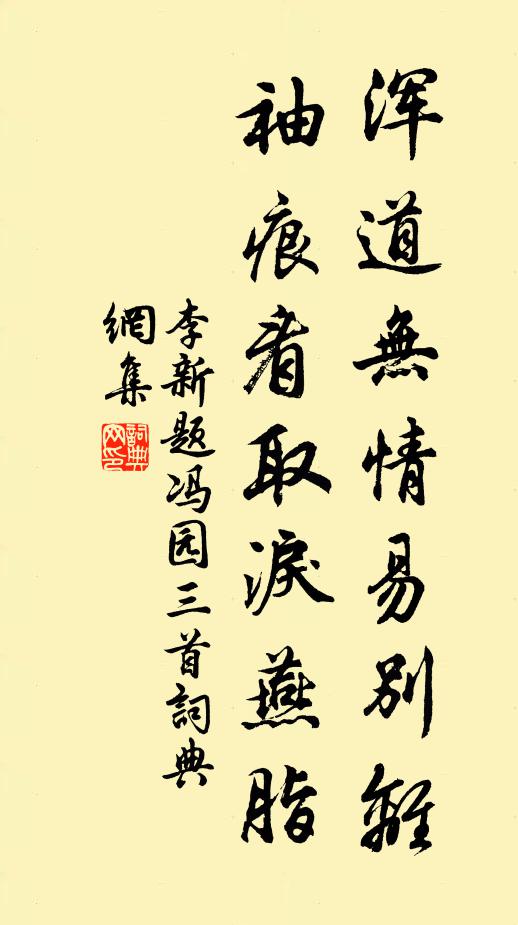 浑道無情易别離
袖痕看取淚燕脂
李新题冯园三首詞典
網集
詞典
网印